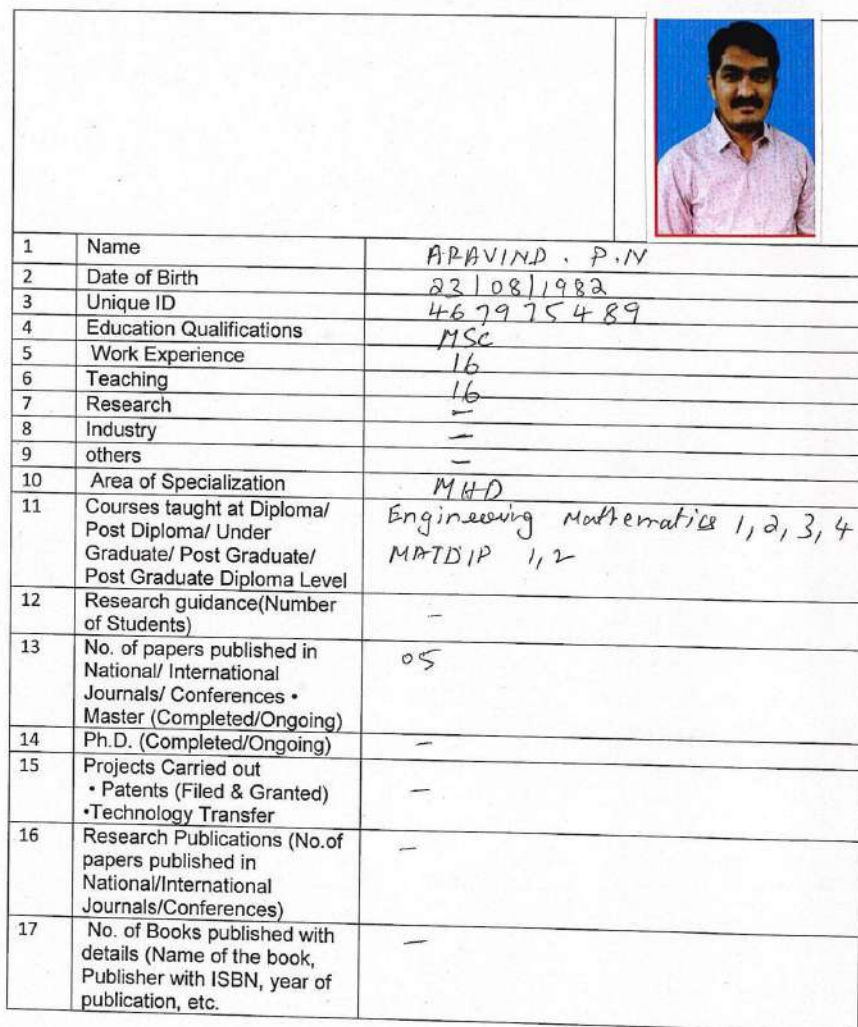 1 Name ARAVIND . P.N
2 Date of Birth 23/08/1982
3 Unique ID 4679754 89
4 Education Qualifications MSc
5 Work Experience 16
6 Teaching 16
7 Research -
8 Industry -
9 others -
10 Area of Specialization MHD
11 Courses taught at Diploma/ Engineering Mathematics 1, 2, 3, 4
Post Diploma/ Under
Graduate/ Post Graduate/ MATDIP 1, 2
Post Graduate Diploma Level
12 Research guidance(Number -
of Students)
13 No. of papers published in 05
National/ International
Journals/ Conferences •
Master (Completed/Ongoing)
14 Ph.D. (Completed/Ongoing) -
15 Projects Carried out
• Patents (Filed & Granted) -
•Technology Transfer
16 Research Publications (No.of -
papers published in
National/International
Journals/Conferences)
17 No. of Books published with -
details (Name of the book,
Publisher with ISBN, year of
publication, etc.